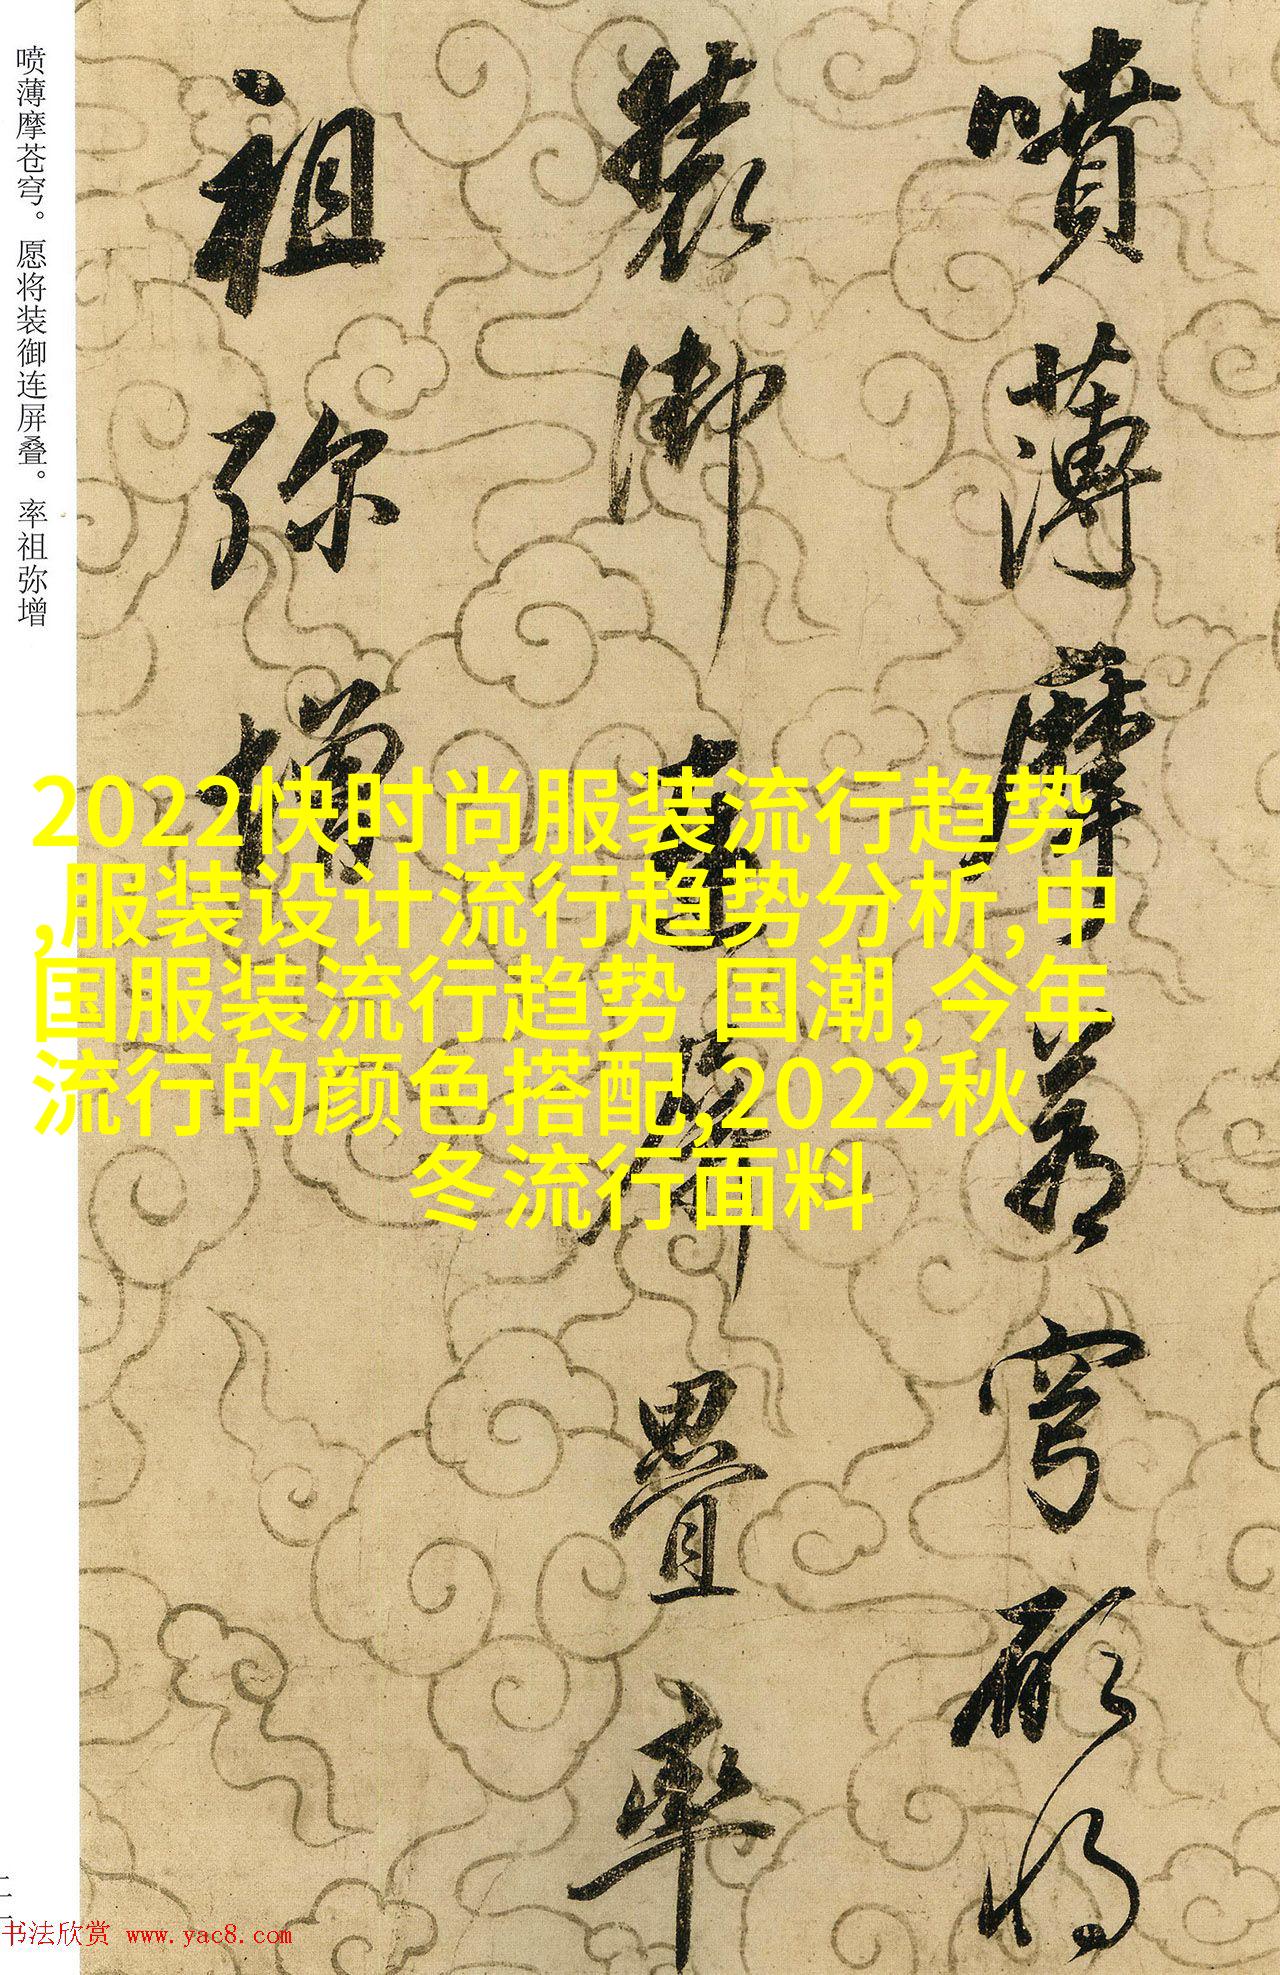 喷薄摩苍穹。愿将装御连屏叠。率祖弥增
噴薄摩蒼穹願将
装御連屏疊率
祖弥增
2022快时尚服装流行趋势
,服装设计流行趋势分析,中
国服装流行趋势 国潮,今年
流行的颜色搭配,2022秋
冬流行面料
书法欣赏 www.yac8.com